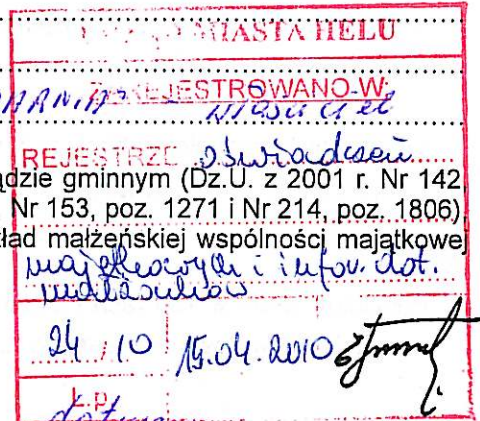 MIASTA HELU
ZAREJESTROWANO W:
REJESTRZE oświadczeń
ądzie gminnym (Dz.U. z 2001 r. Nr 142,
Nr 153, poz. 1271 i Nr 214, poz. 1806),
kład małżeńskiej wspólności majątkowej
majątkowych i infor. dot.
małżonków
24/10 15.04.2010
L.p.